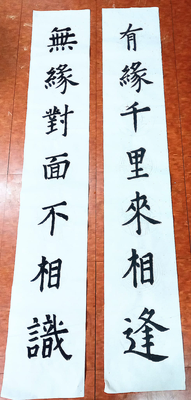 有緣千里來相逢
無緣對面不相識